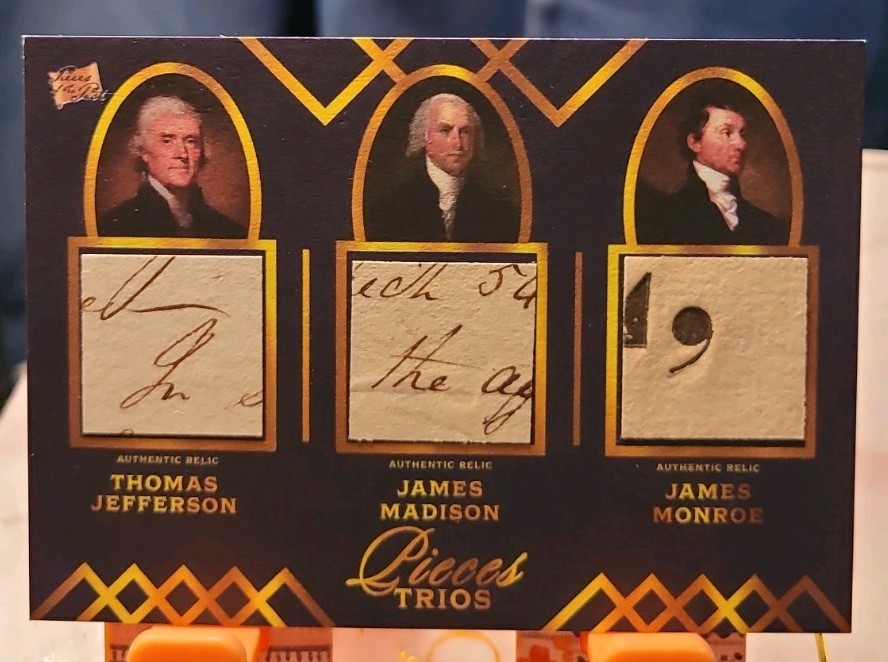 Pieces
of the Past
In
ich 54
the ag
,
AUTHENTIC RELIC
THOMAS
JEFFERSON
AUTHENTIC RELIC
JAMES
MADISON
AUTHENTIC RELIC
JAMES
MONROE
Pieces
TRIOS